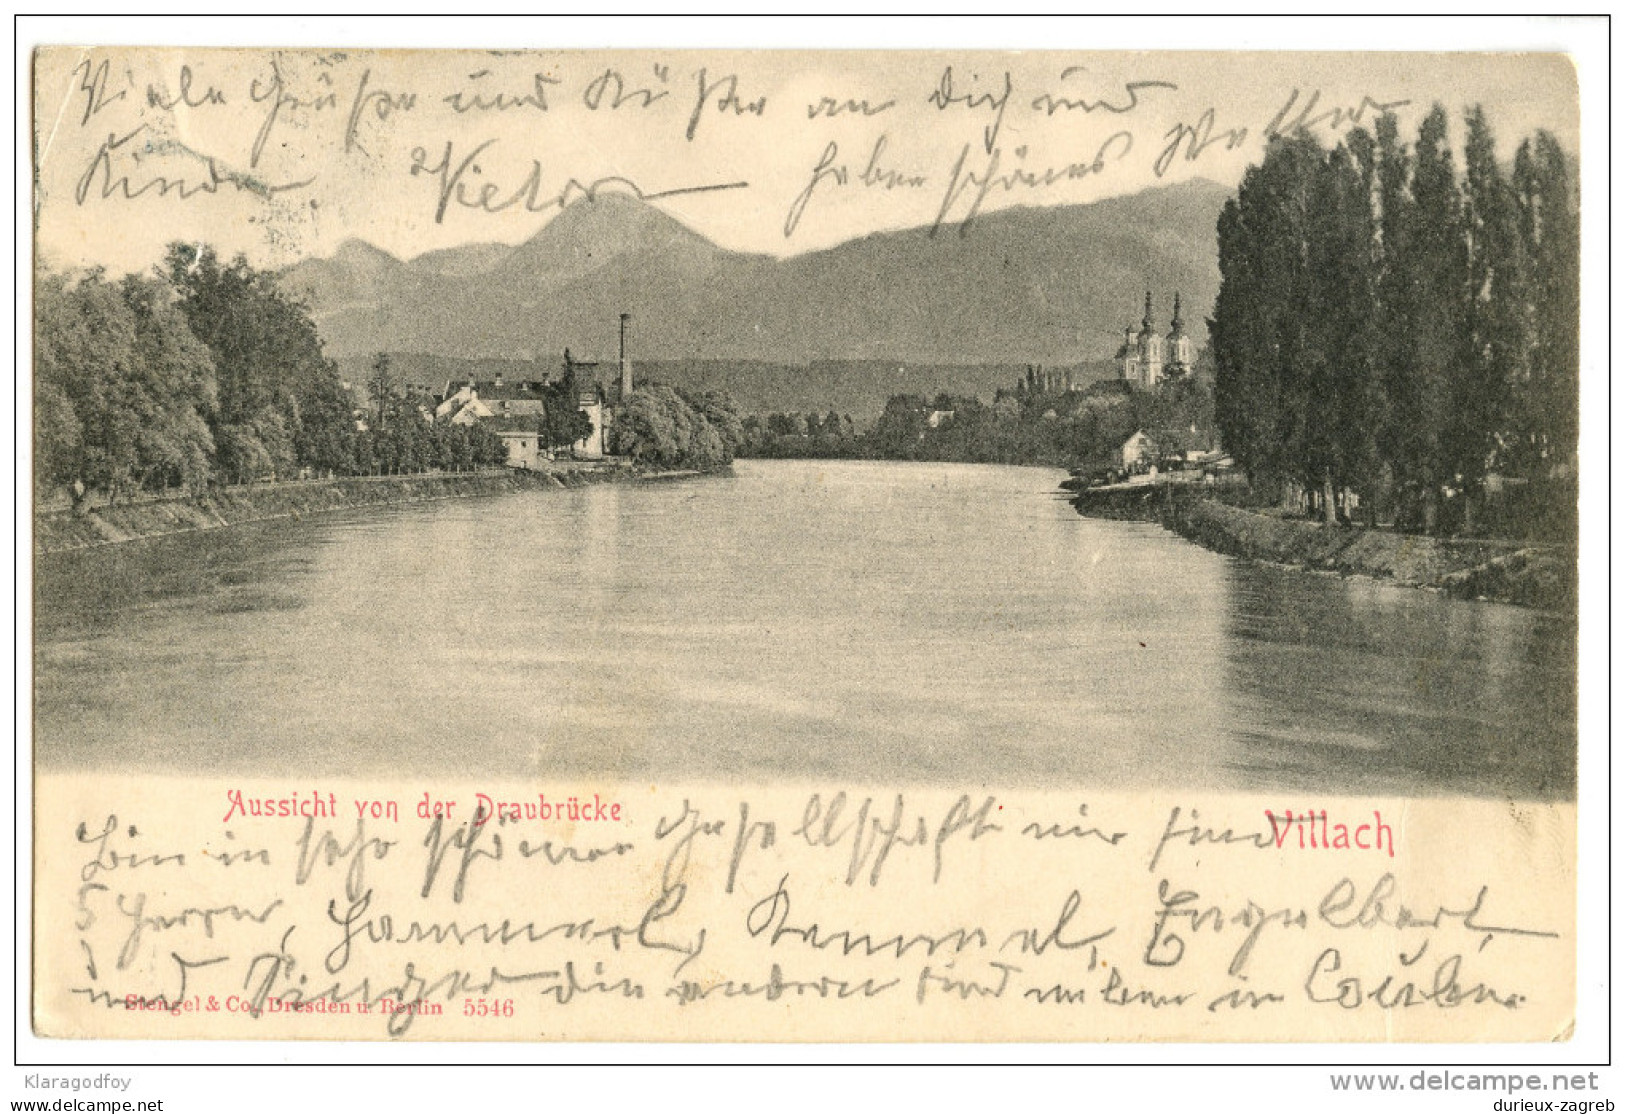 Viele Grüße und Küsse an Dich und
Kinder Victor haben schönes Wetter
Aussicht von der Draubrücke
Villach
Bin in sehr schöner Gesellschaft wir sind
5 Herren, Hammerl, Kemmel, Engelbert,
und die andern sind neben in Coupe.
Stengel & Co., Dresden u. Berlin 5546
Klaragodfoy
www.delcampe.net
delcampe.net
durieux-zagreb